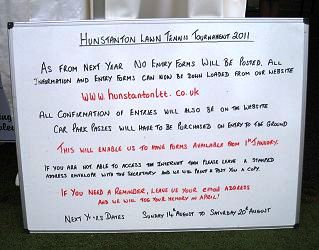 HUNSTANTON LAWN TENNIS TOURNAMENT 2011
AS FROM NEXT YEAR NO ENTRY FORMS WILL BE POSTED. ALL
INFORMATION AND ENTRY FORMS CAN NOW BE DOWN LOADED FROM OUR WEBSITE
www.hunstantonltt.co.uk
ALL CONFIRMATION OF ENTRIES WILL ALSO BE ON THE WEBSITE
CAR PARK PASSES WILL HAVE TO BE PURCHASED ON ENTRY TO THE GROUND
THIS WILL ENABLE US TO HAVE FORMS AVAILABLE FROM 1ST JANUARY.
IF YOU ARE NOT ABLE TO ACCESS THE INTERNET THEN PLEASE LEAVE A STAMPED
ADDRESS ENVELOPE WITH THE SECRETARY AND WE WILL PRINT & POST YOU A COPY.
IF YOU NEED A REMINDER, LEAVE US YOUR email ADDRESS
AND WE WILL JOG YOUR MEMORY IN APRIL!
NEXT YEARS DATES SUNDAY 14th AUGUST TO SATURDAY 20th AUGUST